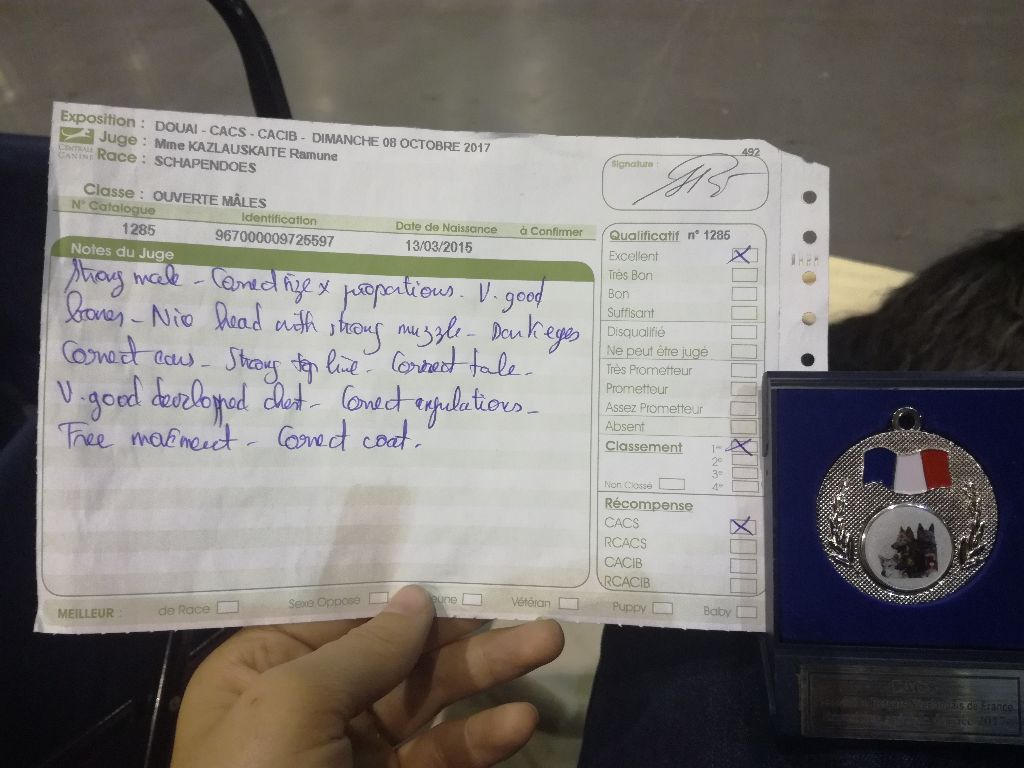 Exposition : DOUAI - CACS - CACIB - DIMANCHE 08 OCTOBRE 2017
Juge : Mme KAZLAUSKAITE Ramune
CENTRALE CANINE
Race : SCHAPENDOES
492
Signature :
Classe : OUVERTE MÂLES
N° Catalogue Identification Date de Naissance à Confirmer
1285 967000009725597 13/03/2015
Notes du Juge
Strong male - Correct size & proportions. V. good
bones - Nice head with strong muzzle - Dark eyes
Correct ears - Strong top line - Correct taile -
V. good developped chest - Correct angulations -
Free movement - Correct coat.
Qualificatif n° 1285
Excellent
Très Bon
Bon
Suffisant
Disqualifié
Ne peut être jugé
Très Prometteur
Prometteur
Assez Prometteur
Absent
Classement 1er
2e
3e
Non Classé 4e
Récompense
CACS
RCACS
CACIB
RCACIB
MEILLEUR : de Race Sexe Opposé Jeune Vétéran Puppy Baby
CACS
de France
2017